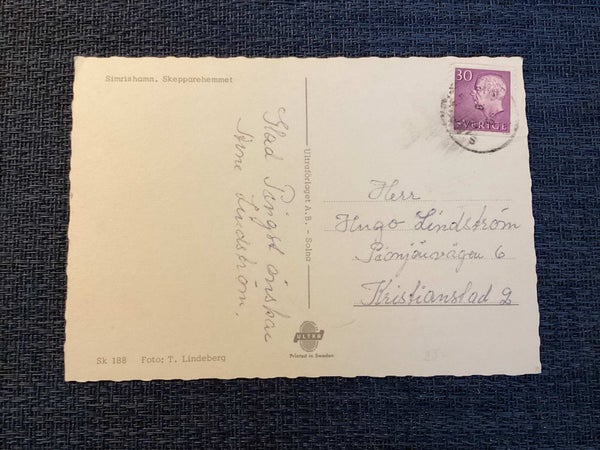 Simrishamn. Skepparehemmet
Glad Pingst önskar
Arne Lindström.
Sk 188 Foto: T. Lindeberg
Ultraförlaget A.B. - Solna
ULTRA
Printed in Sweden
30
SVERIGE
Herr
Hugo Lindström
6
Kristianstad 2